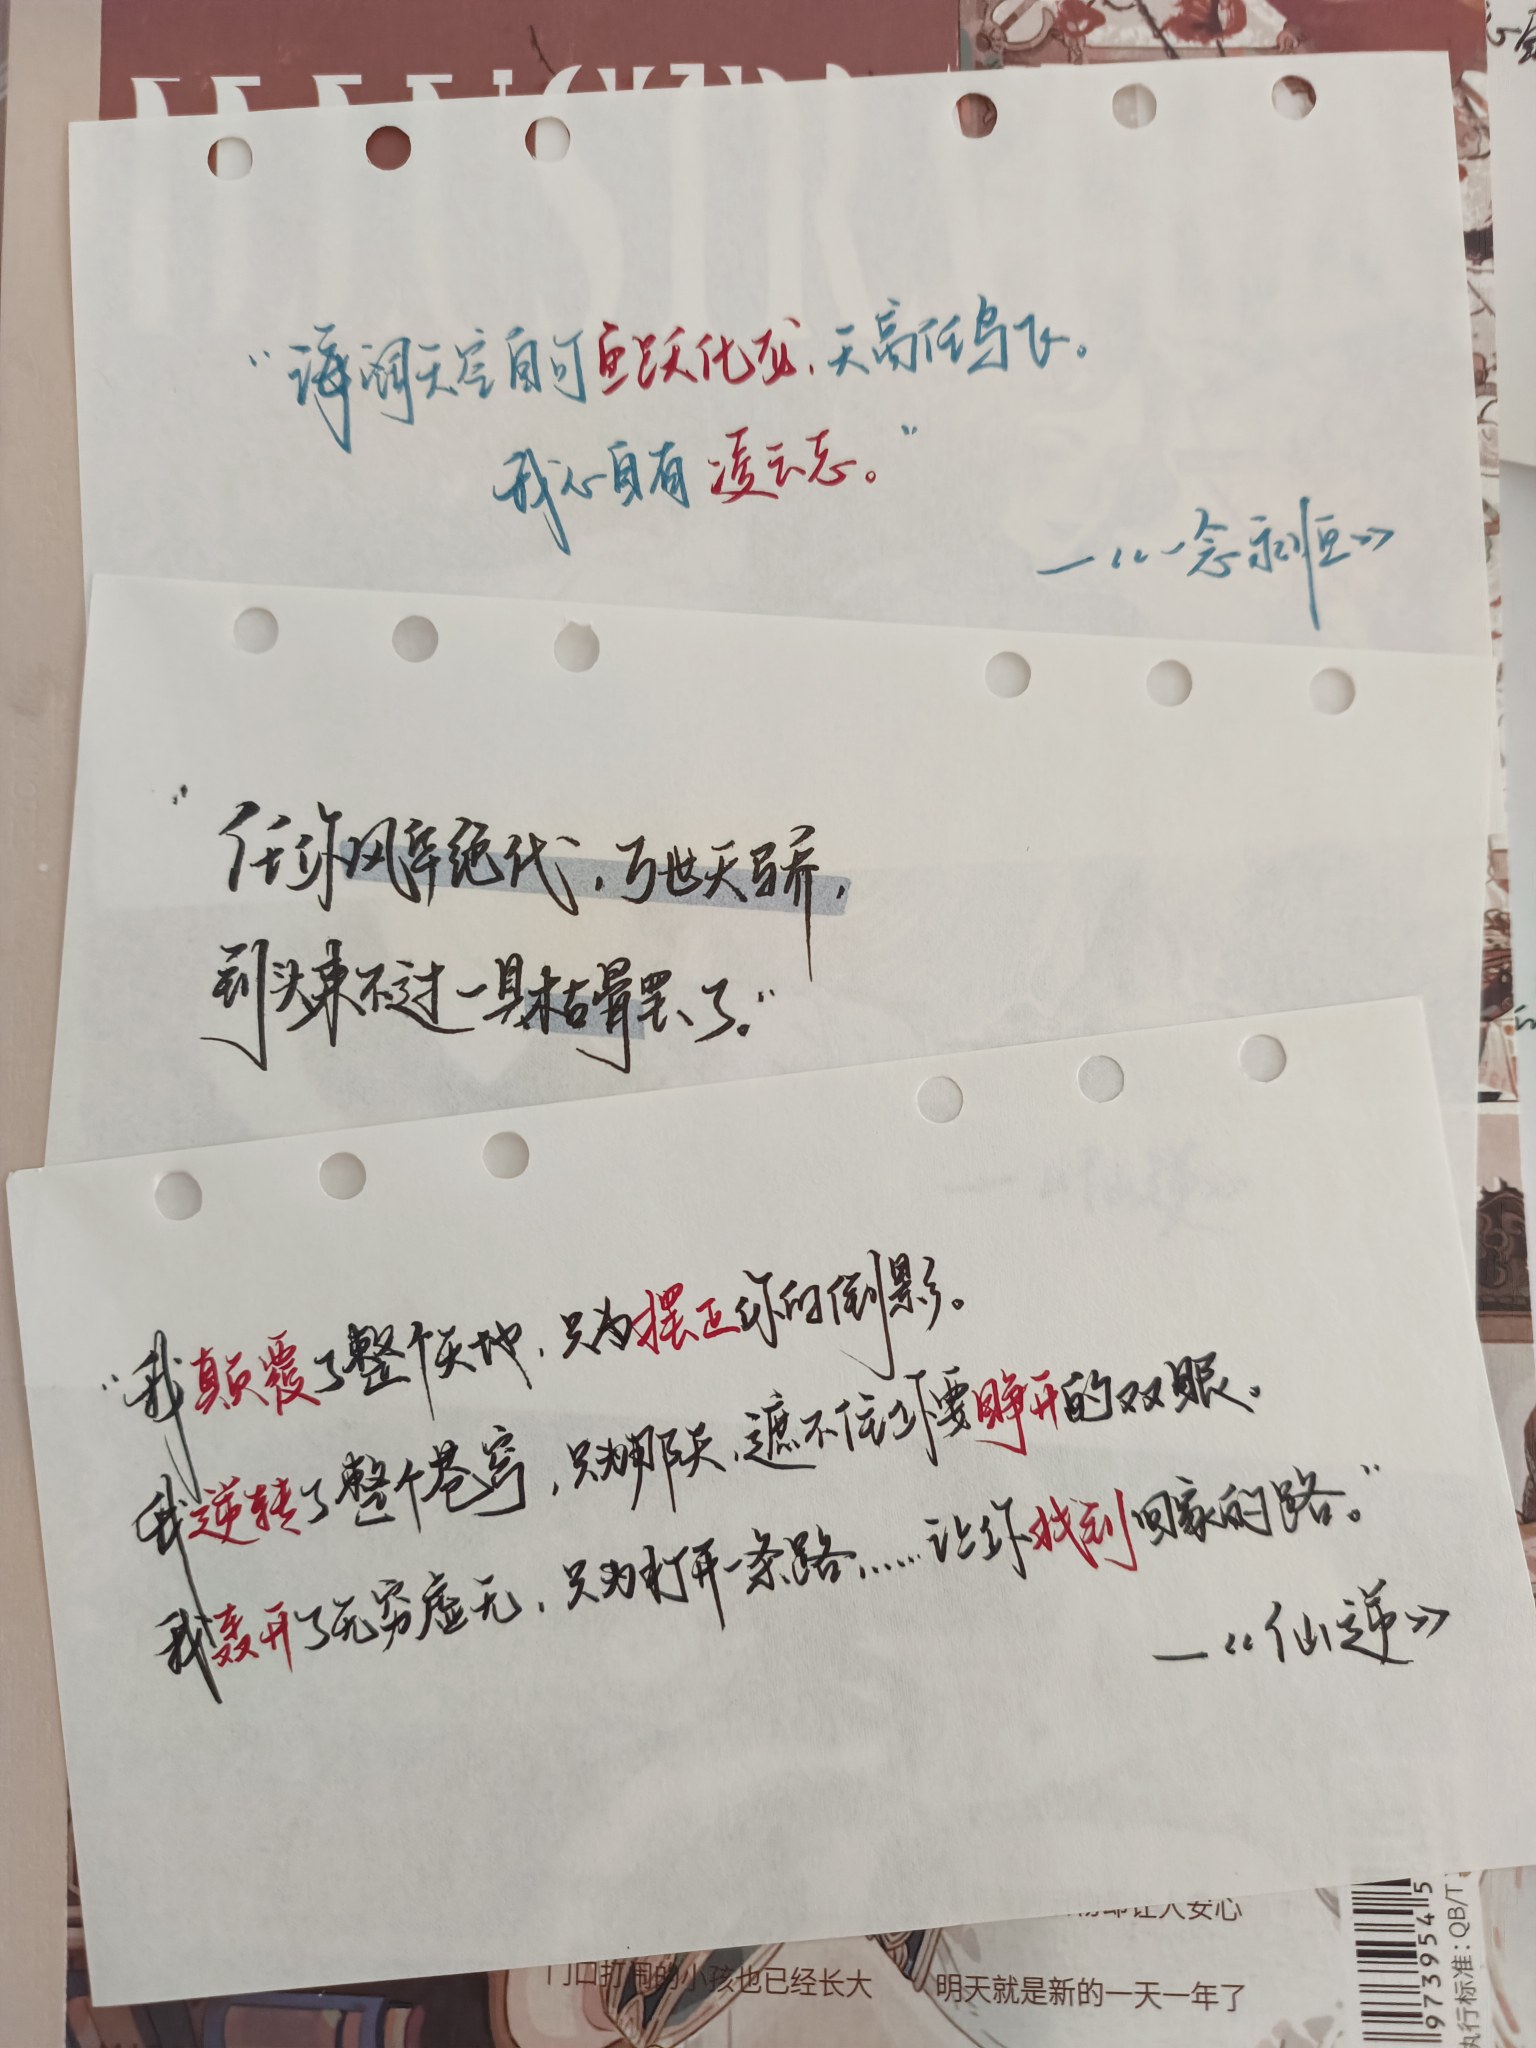 “海阔天空自可鱼跃化龙，天高任鸟飞。
我心自有凌云志。”
—《一念永恒》
“任你风华绝代，万世天骄，
到头来不过一具枯骨罢了。”
“我颠覆了整个天地，只为摆正你的倒影。
我逆转了整个苍穹，只为那天，遮不住你要睁开的双眼。
我轰开了无穷虚无，只为打开一条路……让你找到回家的路。”
—《仙逆》
却让人安心
门口打闹的小孩也已经长大
明天就是新的一天一年了
9739545
执行标准：QB/T